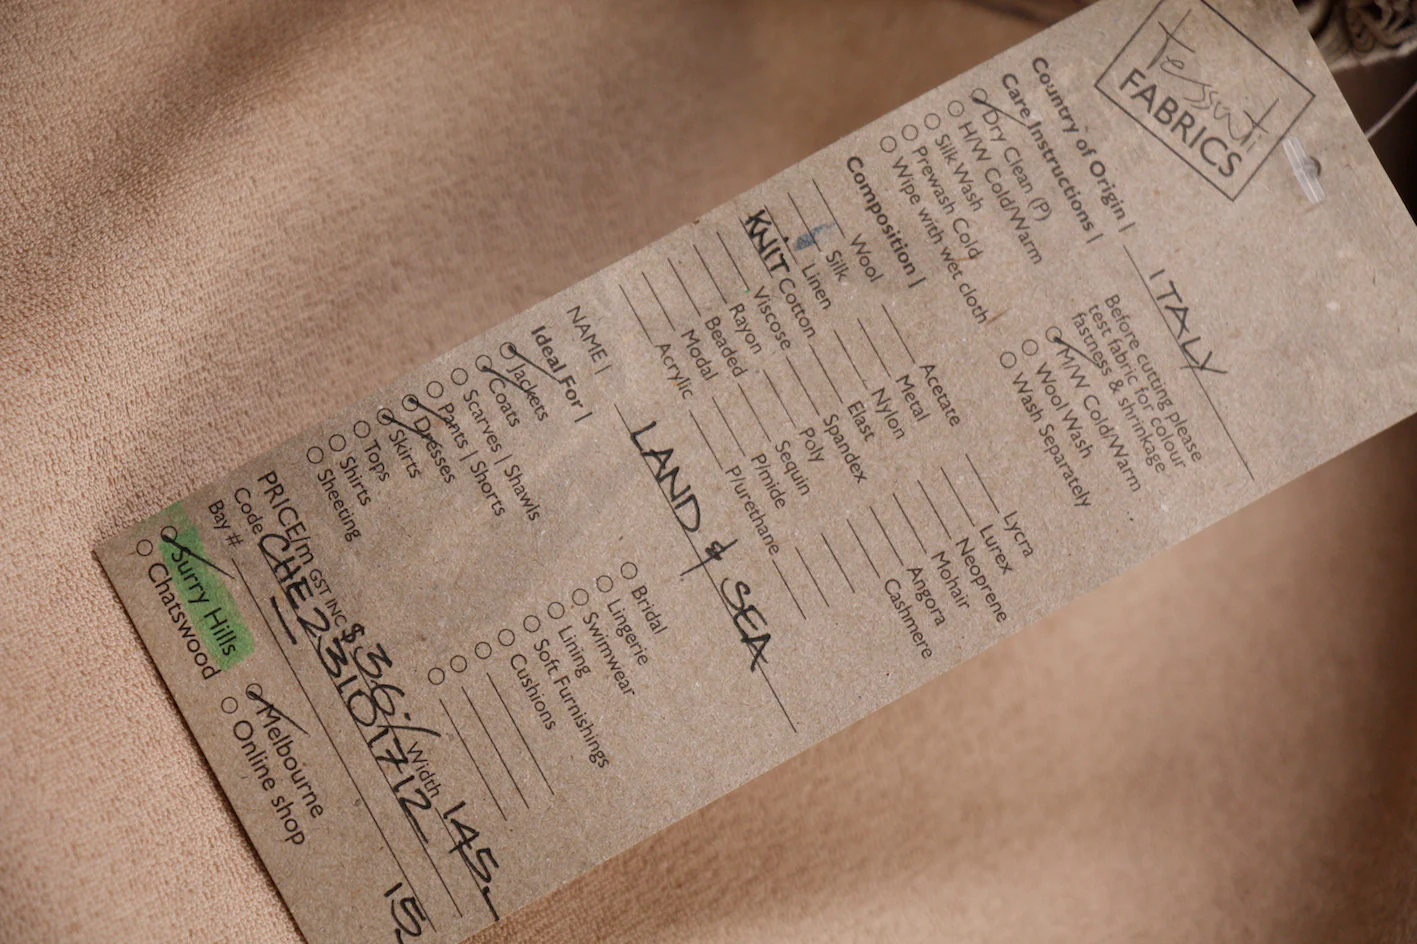 tessuti
FABRICS
Country of Origin | ITALY
Care Instructions |
Dry Clean (P)
H/W Cold/Warm
Silk Wash
Prewash Cold
Wipe with wet cloth
Before cutting please
test fabric for colour
fastness & shrinkage
M/W Cold/Warm
Wool Wash
Wash Separately
Composition |
Wool
Silk
Linen
KNIT Cotton
Viscose
Rayon
Beaded
Modal
Acrylic
Acetate
Metal
Nylon
Elast
Spandex
Poly
Sequin
P/mide
P/urethane
Lycra
Lurex
Neoprene
Mohair
Angora
Cashmere
NAME | LAND & SEA
Ideal For |
Jackets
Coats
Scarves | Shawls
Pants | Shorts
Dresses
Skirts
Tops
Shirts
Sheeting
Bridal
Lingerie
Swimwear
Lining
Soft Furnishings
Cushions
PRICE/m GST INC $36./ Width 145
Code CHE23101712
Bay # 15
Surry Hills
Chatswood
Melbourne
Online shop